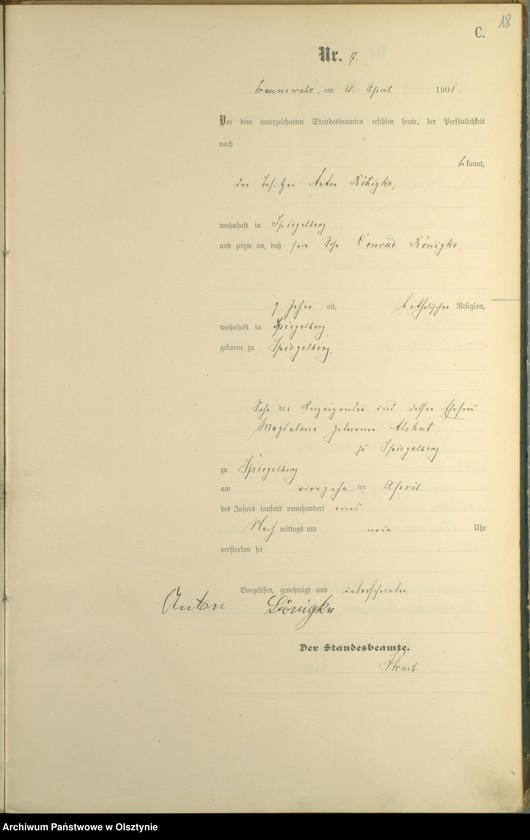 18
C.
Nr. 17.
Braunswalde, am 15. April 1901.
Vor dem unterzeichneten Standesbeamten erschien heute, der Persönlichkeit
nach
bekannt,
der Besitzer Anton Königka,
wohnhaft in Spiegelberg
und zeigte an, daß sein Sohn Conrad Königka
7 Jahre alt, katholischer Religion,
wohnhaft in Spiegelberg
geboren zu Spiegelberg,
Sohn des Anzeigenden und dessen Ehefrau
Magdalena geborene
zu Spiegelberg
zu Spiegelberg
am vierzehn ten April
des Jahres tausend neunhundert eins
Nach mittags um neun Uhr
verstorben sei
Vorgelesen, genehmigt und unterschrieben
Anton Königka
Der Standesbeamte.
Archiwum Państwowe w Olsztynie